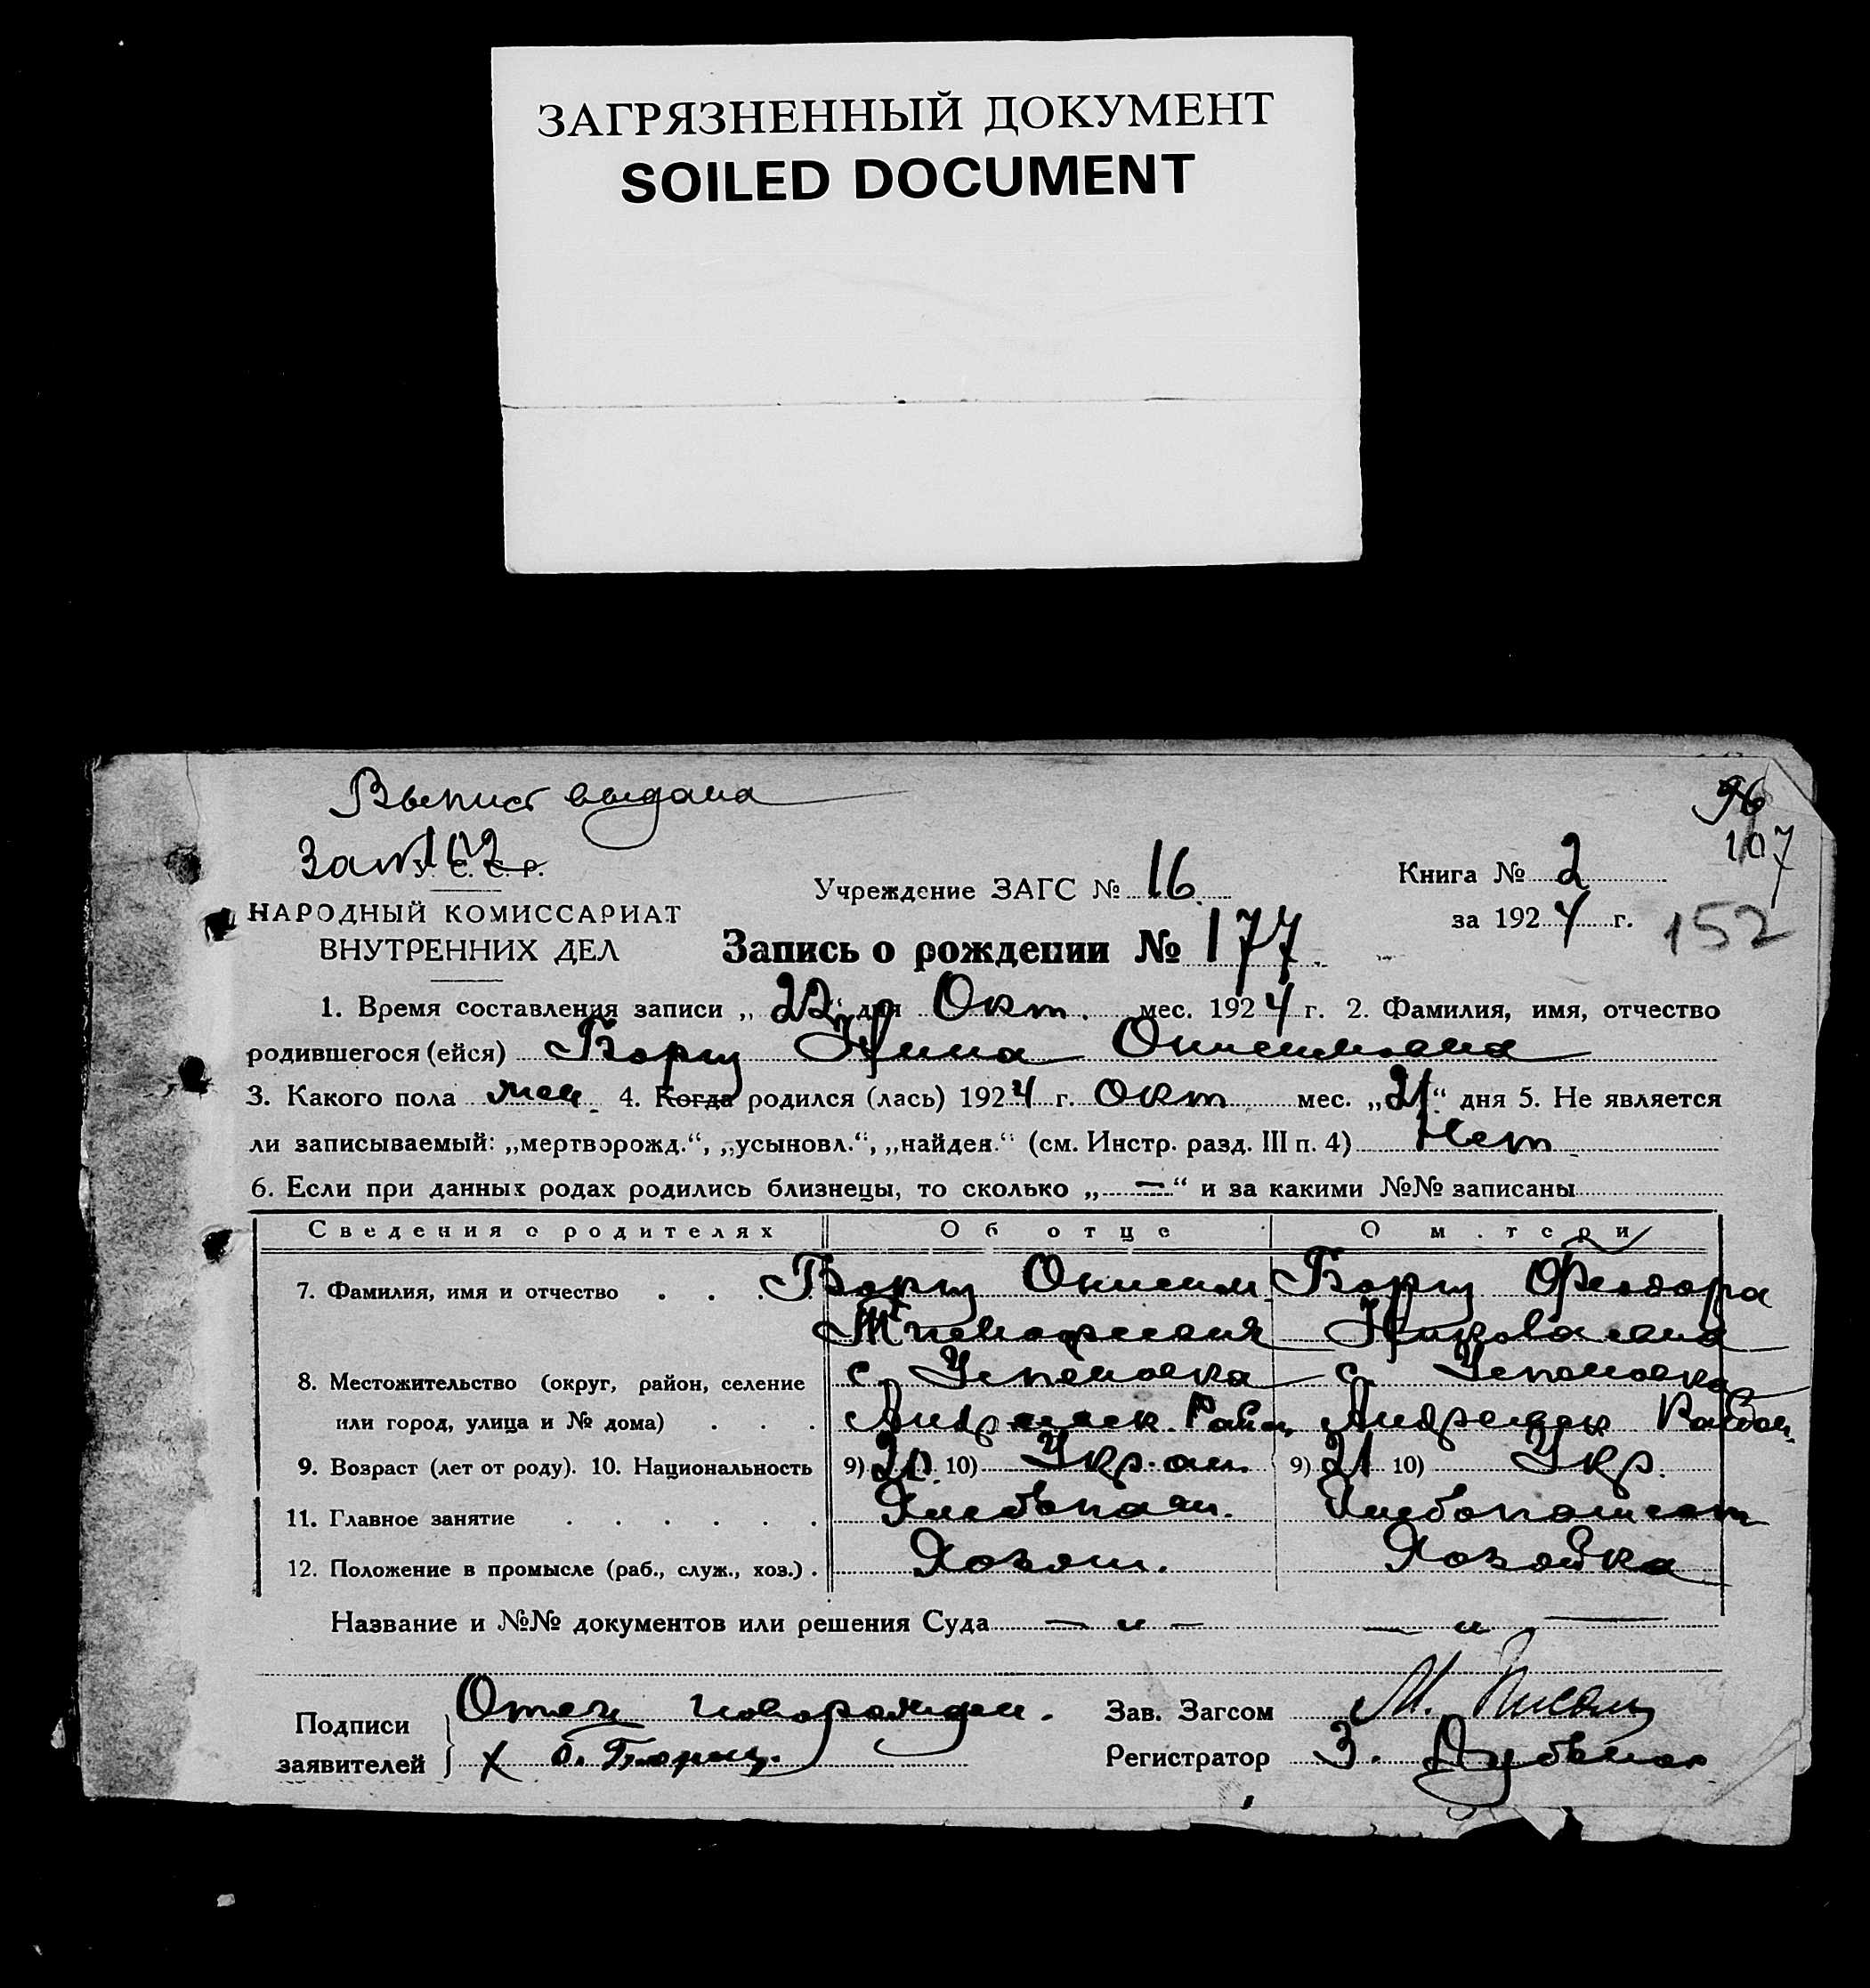 ЗАГРЯЗНЕННЫЙ ДОКУМЕНТ
SOILED DOCUMENT
Выпис выдана
96
107
152
У. С. С. Р.
НАРОДНЫЙ КОМИССАРИАТ
ВНУТРЕННИХ ДЕЛ
Учреждение ЗАГС № 16
Книга № 2
за 1924 г.
Запись о рождении № 177
1. Время составления записи „22“ дня Окт. мес. 1924 г. 2. Фамилия, имя, отчество
родившегося (ейся) Борщ Нина Онисимовна
3. Какого пола жен. 4. Когда родился (лась) 1924 г. Окт мес. „21“ дня 5. Не является
ли записываемый: „мертворожд.“, „усыновл.“, „найден.“ (см. Инстр. разд. III п. 4) Нет
6. Если при данных родах родились близнецы, то сколько „—“ и за какими №№ записаны
Сведения о родителях Об отце О м.тери
7. Фамилия, имя и отчество . . . Борщ Онисим Борщ Феодора
Николаевна
8. Местожительство (округ, район, селение с. Успеновка с. Успеновка
или город, улица и № дома) . . .
9. Возраст (лет от роду). 10. Национальность 9) 20 10) Укр. 9) 21 10) Укр.
11. Главное занятие . . . . . . Хлебопаш. Хлебопашест
12. Положение в промысле (раб., служ., хоз.) . Хозяин. Хозяйка
Название и №№ документов или решения Суда — „ — — „ —
Подписи заявителей Отец новорожден.
х О. Борщ.
Зав. Загсом М.
Регистратор З.